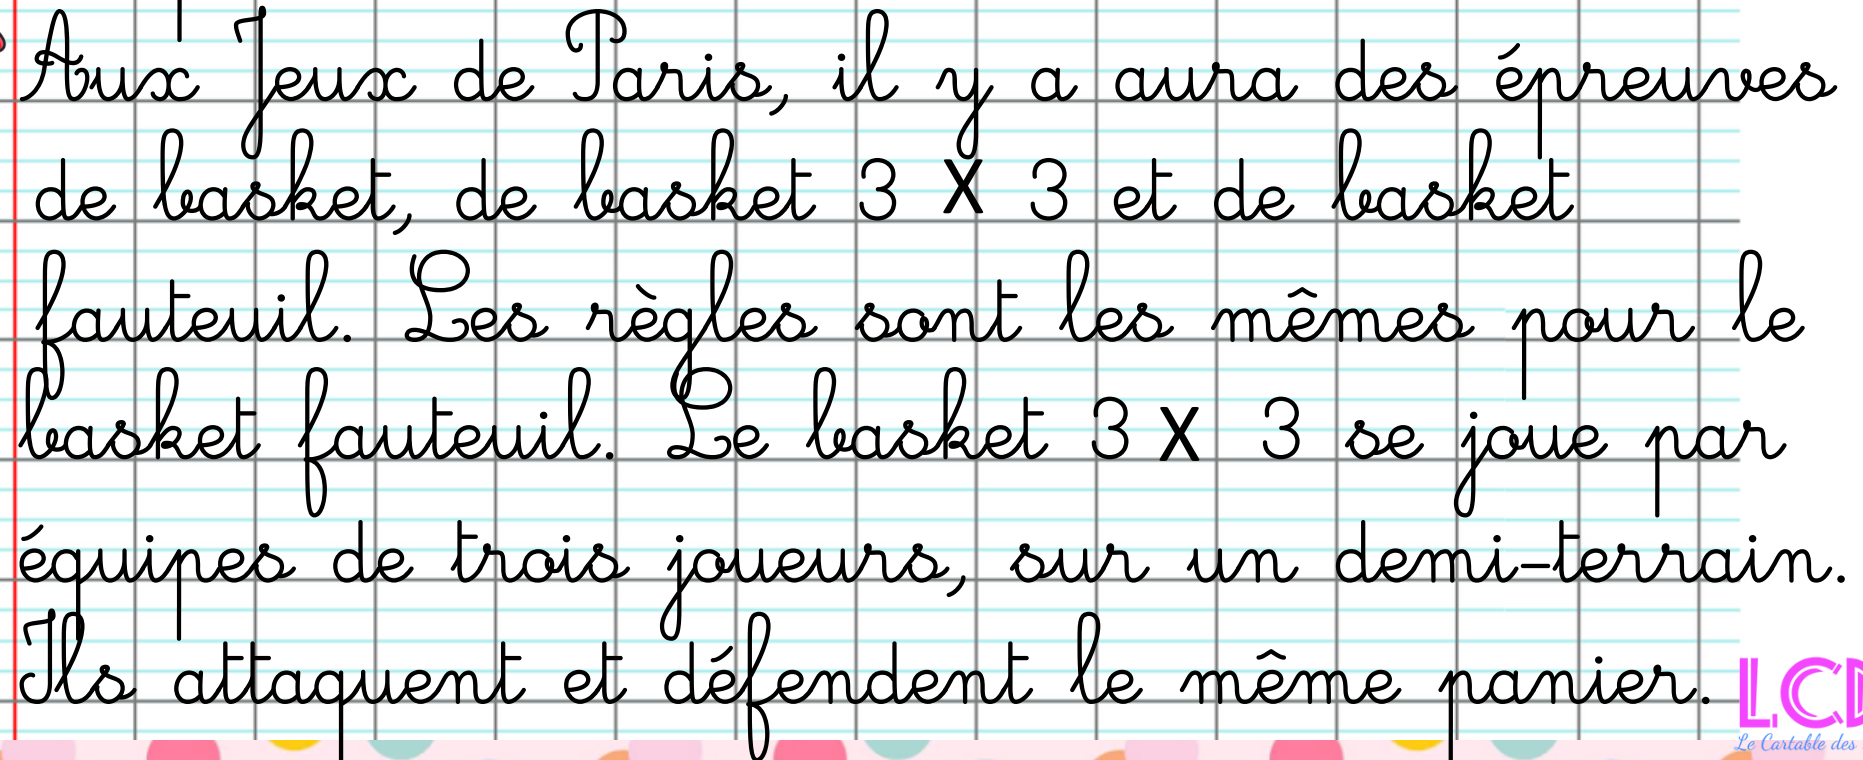 Aux Jeux de Paris, il y a aura des épreuves
de basket, de basket 3 X 3 et de basket
fauteuil. Les règles sont les mêmes pour le
basket fauteuil. Le basket 3 X 3 se joue par
équipes de trois joueurs, sur un demi-terrain.
Ils attaquent et défendent le même panier.
Le Cartable des